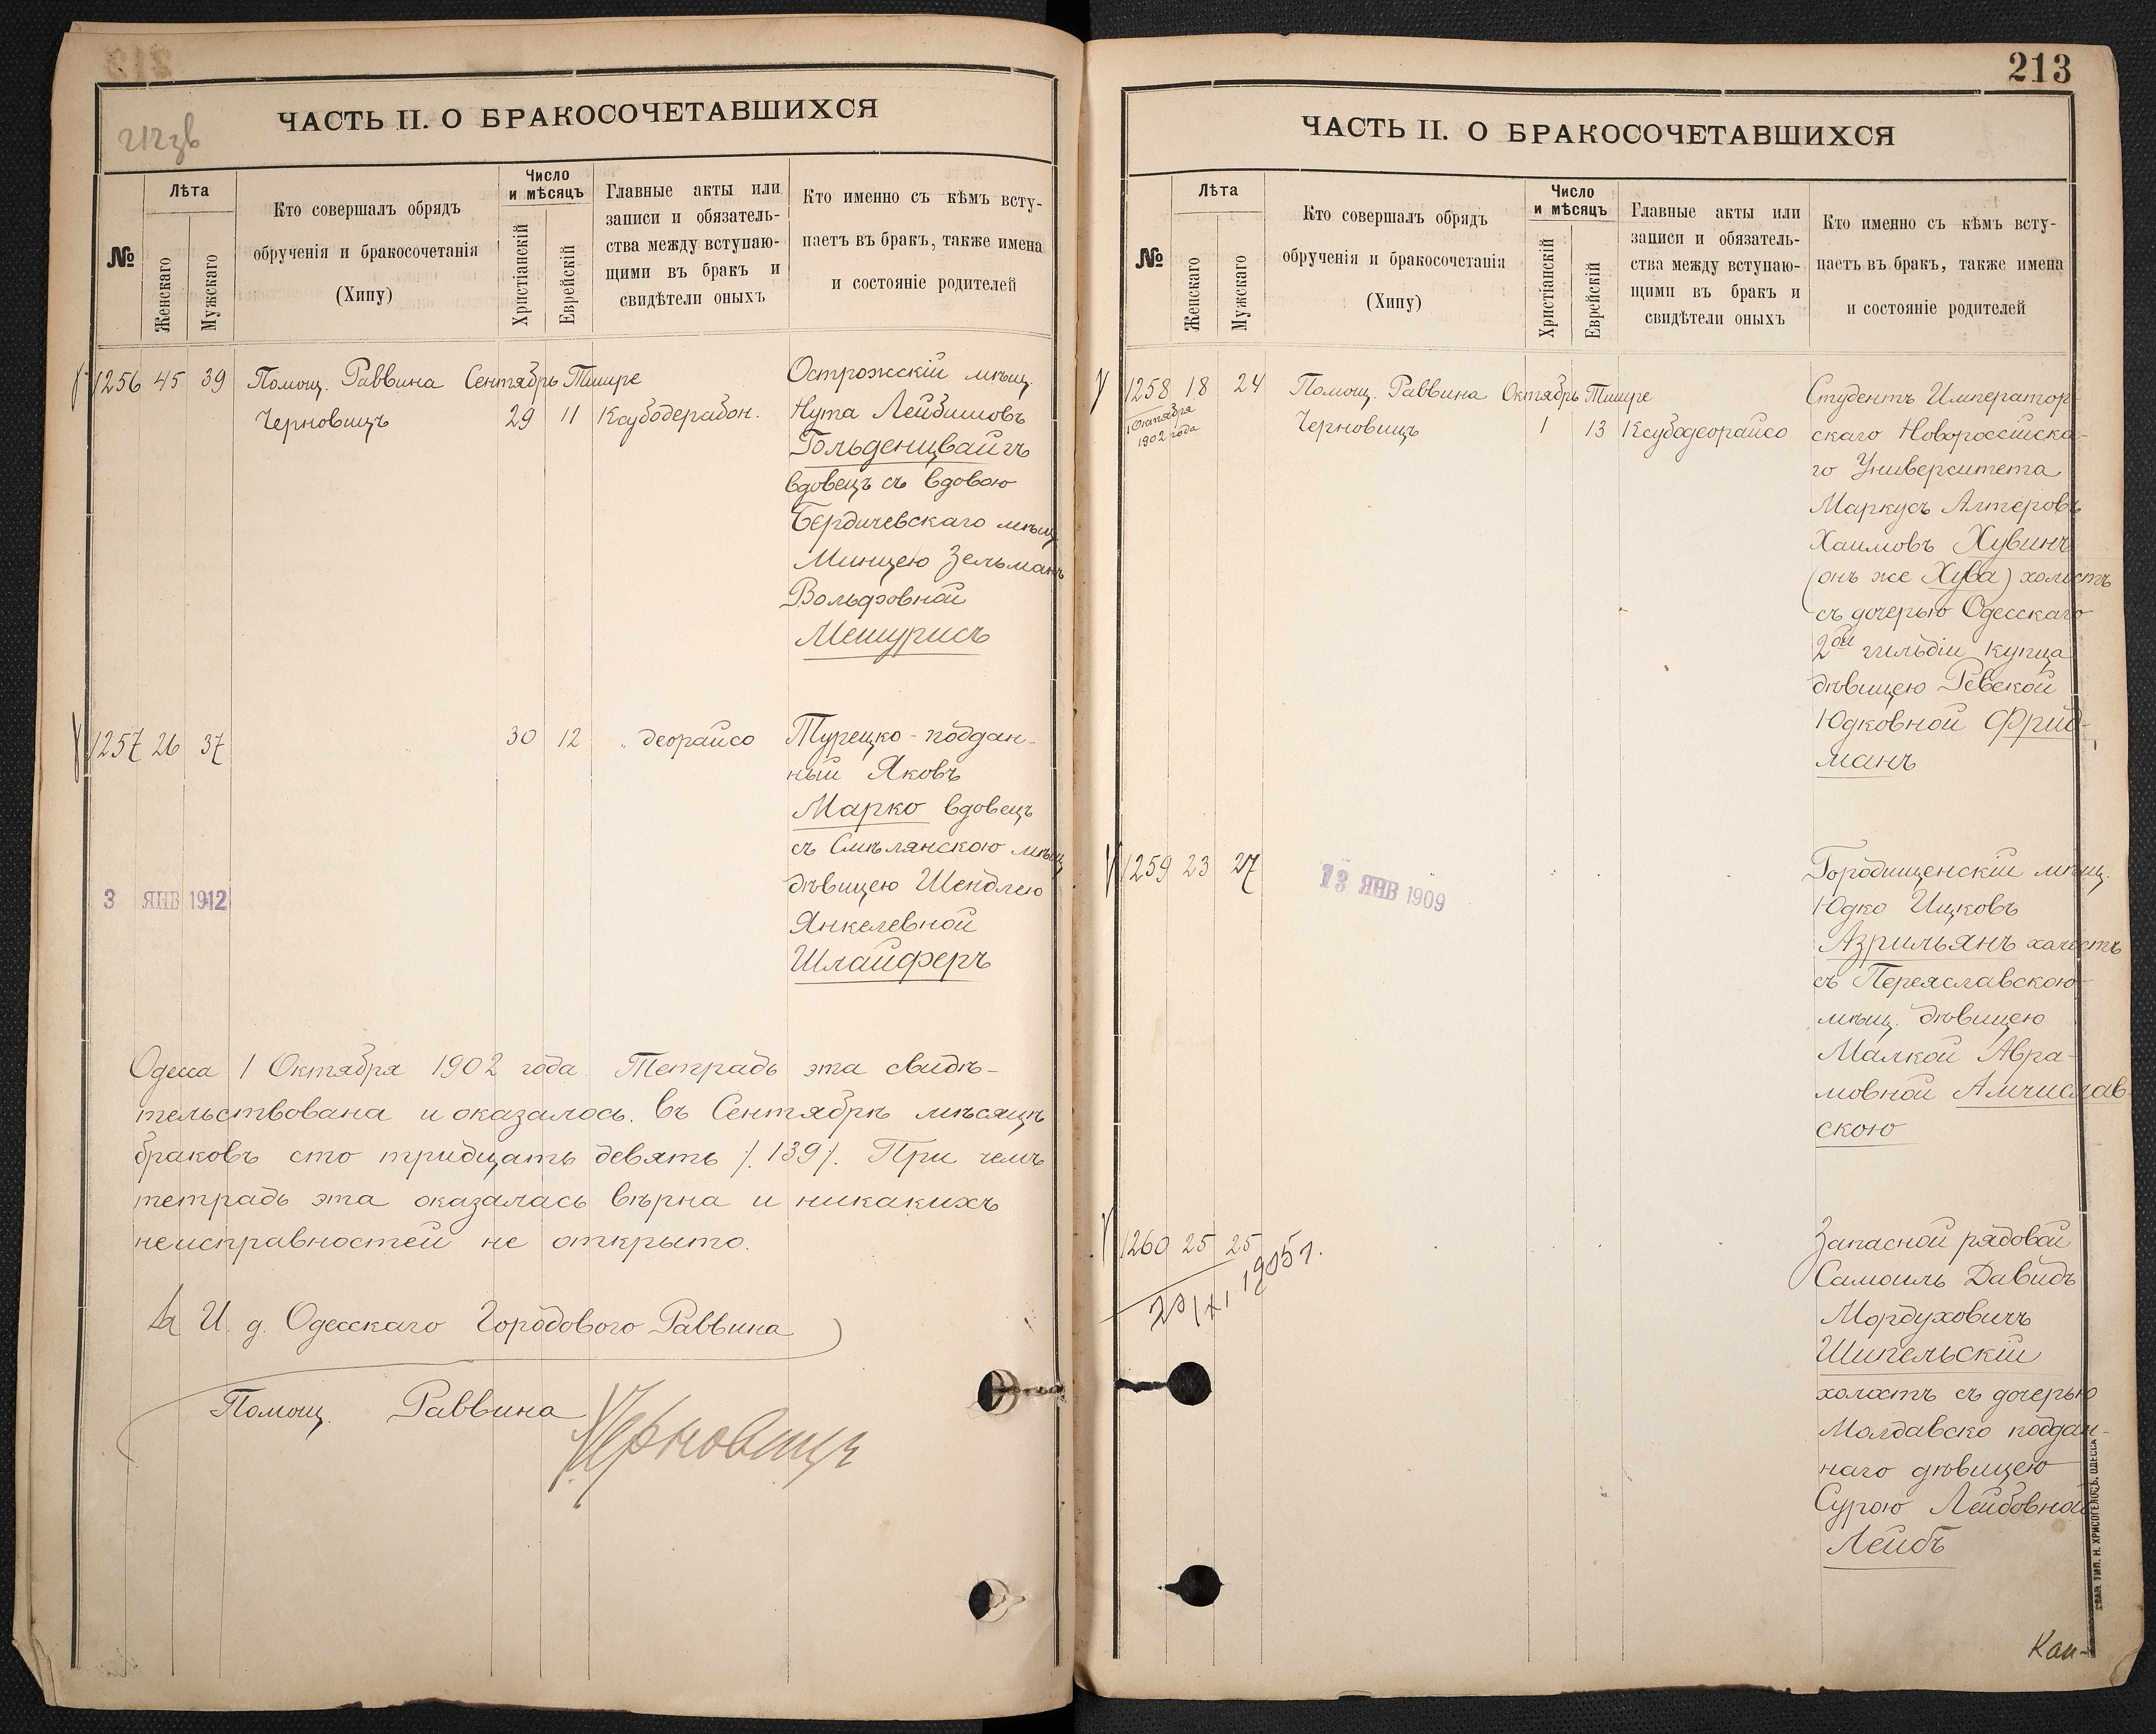 212зв
ЧАСТЬ II. О БРАКОСОЧЕТАВШИХСЯ
№
Лѣта
Женскаго
Мужскаго
Кто совершалъ обрядъ
обрученія и бракосочетанія
(Хипу)
Число
и мѣсяцъ
Христіанскій
Еврейскій
Главные акты или
записи и обязатель-
ства между вступаю-
щими въ бракъ и
свидѣтели оныхъ
Кто именно съ кѣмъ всту-
паетъ въ бракъ, также имена
и состояніе родителей
1256 45 39 Помощ. Раввина Сентябрь Тишре
Черновицъ 29 11 Ксубодерабон.
Острожскій мѣщ.
Нута Лейбишовъ
Гольденцвайгъ
вдовецъ съ вдовою
Бердичевскаго мѣщ.
Минцею Зельманъ
Вольфовной
Мешурисъ
1257 26 37 30 12 „ деорайсо
Турецко-поддан-
ный Яковъ
Марко вдовецъ
съ Смѣлянскою мѣщ.
дѣвицею Шендлею
Янкелевной
Шлайферъ
3 ЯНВ 1912
Одесса 1 Октября 1902 года. Тетрадь эта свидѣ-
тельствована и оказалось въ Сентябрѣ мѣсяцѣ
браковъ сто тридцать девять /139/. При чемъ
тетрадь эта оказалась вѣрна и никакихъ
неисправностей не открыто.
За И. д. Одесскаго Городового Раввина
Помощ. Раввина Черновицъ
213
ЧАСТЬ II. О БРАКОСОЧЕТАВШИХСЯ
№
Лѣта
Женскаго
Мужскаго
Кто совершалъ обрядъ
обрученія и бракосочетанія
(Хипу)
Число
и мѣсяцъ
Христіанскій
Еврейскій
Главные акты или
записи и обязатель-
ства между вступаю-
щими въ бракъ и
свидѣтели оныхъ
Кто именно съ кѣмъ всту-
паетъ въ бракъ, также имена
и состояніе родителей
1258 18 24 Помощ. Раввина Октябрь Тишре
1 Октября
1902 года
Черновицъ 1 13 Ксубодеорайсо
Студентъ Император-
скаго Новороссійска-
го Университета
Маркусъ Алтеровъ
Хаимовъ Хувинъ
(онъ же Хува) холостъ
съ дочерью Одесскаго
2ой гильдіи купца
дѣвицею Ревекой
Юдковной Фрид-
манъ
1259 23 27
13 ЯНВ 1909
Городищенскій мѣщ.
Юдко Ицковъ
Азрильянъ холостъ
съ Переяславскою
мѣщ. дѣвицею
Малкой Авра-
мовной Амчислав-
скою
1260 25 25
1905 г.
Запасной рядовой
Самоиль Давидъ
Мордуховичъ
Шипельскій
холостъ съ дочерью
Молдавско поддан-
наго дѣвицею
Сурою Лейбовной
Лейбъ
ТИП. Н. ХРИСОГЕЛОСЪ, ОДЕССА